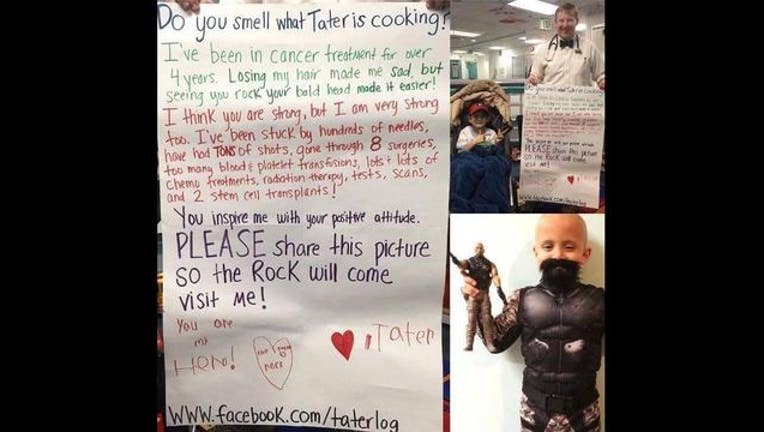 Do you smell what Tater is cooking?
I've been in cancer treatment for over
4 years. Losing my hair made me sad, but
seeing you rock your bald head made it easier!
I think you are strong, but I am very strong
too. I've been stuck by hundreds of needles,
have had TONS of shots, gone through 8 surgeries,
too many blood & platelet transfusions, lots & lots of
chemo treatments, radiation therapy, tests, scans,
and 2 stem cell transplants!
You inspire me with your positive attitude.
PLEASE share this picture
so the Rock will come
visit me!
You are
my
Hero!
Tater
WWW.facebook.com/taterlog
Do you smell what Tater is cooking
PLEASE share this picture
so the Rock will come
visit me!
www.facebook.com/taterlog